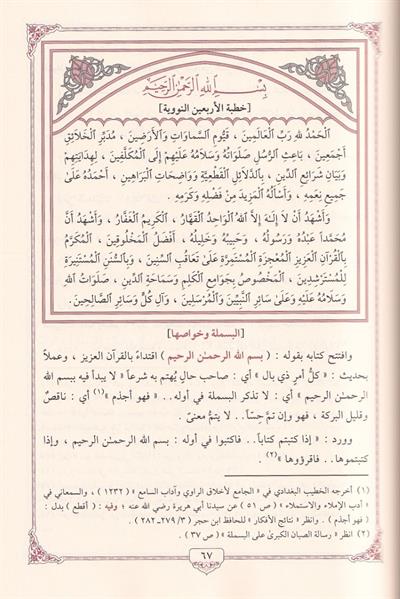 بِسْمِ اللهِ الرَّحْمٰنِ الرَّحِيْمِ
[خطبة الأربعين النووية]
اَلْحَمْدُ للهِ رَبِّ الْعَالَمِينَ ، قَيُّومِ السَّمَاوَاتِ وَالأَرَضِينَ ، مُدَبِّرِ الْخَلاَئِقِ
أَجْمَعِينَ ، بَاعِثِ الرُّسُلِ صَلَوَاتُهُ وَسَلاَمُهُ عَلَيْهِمْ إِلَى الْمُكَلَّفِينَ ، لِهِدَايَتِهِمْ
وَبَيَانِ شَرَائِعِ الدِّينِ ، بِالدَّلاَئِلِ الْقَطْعِيَّةِ وَوَاضِحَاتِ الْبَرَاهِينِ ، أَحْمَدُهُ عَلَى
جَمِيعِ نِعَمِهِ ، وَأَسْأَلُهُ الْمَزِيدَ مِنْ فَضْلِهِ وَكَرَمِهِ .
وَأَشْهَدُ أَنْ لاَ إِلٰهَ إِلاَّ اللهُ الْوَاحِدُ الْقَهَّارُ ، الْكَرِيمُ الْغَفَّارُ ، وَأَشْهَدُ أَنَّ
مُحَمَّداً عَبْدُهُ وَرَسُولُهُ ، وَحَبِيبُهُ وَخَلِيلُهُ ، أَفْضَلُ الْمَخْلُوقِينَ ، الْمُكَرَّمُ
بِالْقُرْآنِ الْعَزِيزِ الْمُعْجِزَةِ الْمُسْتَمِرَّةِ عَلَى تَعَاقُبِ السِّنِينَ ، وَبِالسُّنَنِ الْمُسْتَنِيرَةِ
لِلْمُسْتَرْشِدِينَ ، الْمَخْصُوصُ بِجَوَامِعِ الْكَلِمِ وَسَمَاحَةِ الدِّينِ ، صَلَوَاتُ اللهِ
وَسَلاَمُهُ عَلَيْهِ وَعَلَى سَائِرِ النَّبِيِّينَ وَالْمُرْسَلِينَ ، وَآلِ كُلٍّ وَسَائِرِ الصَّالِحِينَ .
[البسملة وخواصها]
وافتتح كتابه بقوله : ( بسم الله الرحمٰن الرحيم ) اقتداءً بالقرآن العزيز ، وعملاً
بحديث : « كلُّ أمرٍ ذي بال » أي : صاحب حال يُهتم به شرعاً « لا يبدأ فيه ببسم الله
الرحمٰن الرحيم » أي : لا تذكر البسملة في أوله.. « فهو أجذم »(١) أي : ناقصٌ
وقليل البركة ، فهو وإن تمَّ حِسّاً.. لا يتمُّ معنىً .
وورد : « إذا كتبتم كتاباً.. فاكتبوا في أوله : بسم الله الرحمٰن الرحيم ، وإذا
كتبتموها.. فاقرؤوها »(٢) .
(١) أخرجه الخطيب البغدادي في « الجامع لأخلاق الراوي وآداب السامع » ( ١٢٣٢ ) ، والسمعاني في
« أدب الإملاء والاستملاء » ( ص ٥١ ) عن سيدنا أبي هريرة رضي الله عنه ؛ وفيه : ( أقطع ) بدل :
( فهو أجذم ) . وانظر « نتائج الأفكار » للحافظ ابن حجر ( ٣/ ٢٧٩ـ ٢٨٢ ) .
(٢) انظر « رسالة الصبان الكبرىٰ على البسملة » ( ص ٣٧ ) .
٦٧